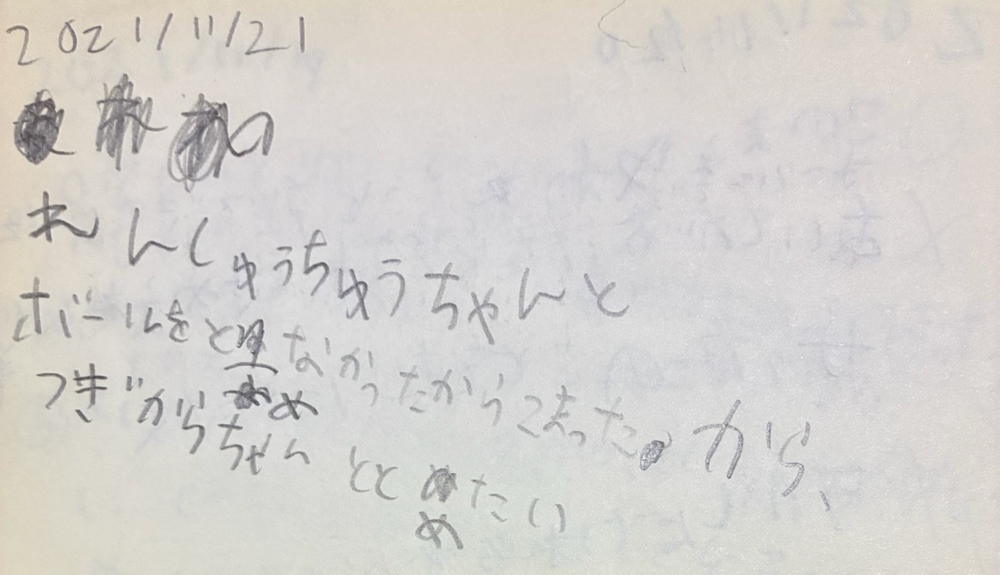 2021/11/21
の
れんしゅうちゅうちゃんと
ボールをとめなかったからこまったから、
つぎからちゃんととめたい